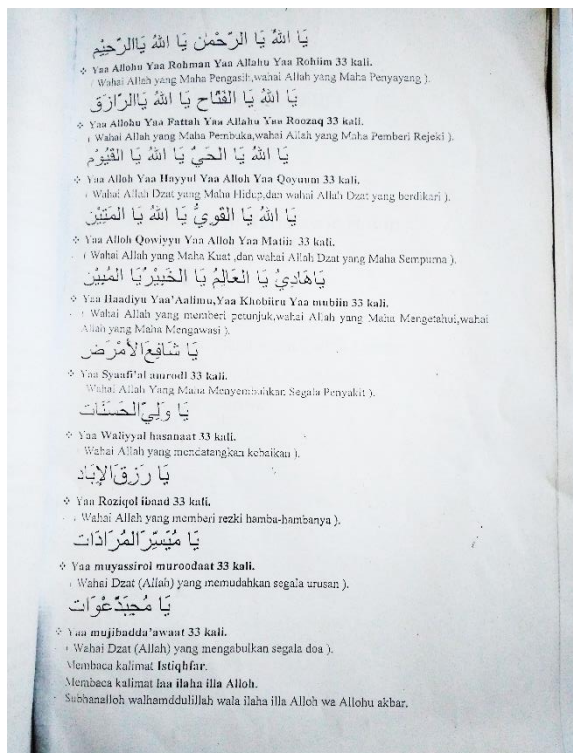 يَا اللهُ يَا الرَّحْمٰن يَا اللهُ يَاالرَّحِيْم
❖ Yaa Allohu Yaa Rohman Yaa Allahu Yaa Rohiim 33 kali.
( Wahai Allah yang Maha Pengasih,wahai Allah yang Maha Penyayang ).
يَا اللهُ يَا الفَتَّاح يَا اللهُ يَاالرَّازَق
❖ Yaa Allohu Yaa Fattah Yaa Allahu Yaa Roozaq 33 kali.
( Wahai Allah yang Maha Pembuka,wahai Allah yang Maha Pemberi Rejeki ).
يَا اللهُ يَا الحَيُّ يَا اللهُ يَا القَيُّوْم
❖ Yaa Alloh Yaa Hayyul Yaa Alloh Yaa Qoyuum 33 kali.
( Wahai Allah Dzat yang Maha Hidup,dan wahai Allah Dzat yang berdikari ).
يَا اللهُ يَا القَوِيُّ يَا اللهُ يَا المَتِيْن
❖ Yaa Alloh Qowiyyu Yaa Alloh Yaa Matiin 33 kali.
( Wahai Allah yang Maha Kuat ,dan wahai Allah Dzat yang Maha Sempurna ).
يَاهَادِيُ يَا العَالِمُ يَا الخَبِيْرُيَا المُبِيْن
❖ Yaa Haadiyu Yaa'Aalimu,Yaa Khobiiru Yaa mubiin 33 kali.
( Wahai Allah yang memberi petunjuk,wahai Allah yang Maha Mengetahui,wahai
Allah yang Maha Mengawasi ).
يَا شَافِعَ الأَمْرَض
❖ Yaa Syaafi'al amrodl 33 kali.
Wahai Allah Yang Maha Menyembuhkan Segala Penyakit ).
يَا وَلِيَّ الحَسَنَات
❖ Yaa Waliyyal hasanaat 33 kali.
Wahai Allah yang mendatangkan kebaikan ).
يَا رَزِقَ الإِبَاد
❖ Yaa Roziqol ibaad 33 kali.
( Wahai Allah yang memberi rezki hamba-hambanya ).
يَا مُيَسِّرَ المُرَادَات
❖ Yaa muyassirol muroodaat 33 kali.
( Wahai Dzat (Allah) yang memudahkan segala urusan ).
يَا مُجِبَدَّعْوَات
❖ Yaa mujibadda'awaat 33 kali.
( Wahai Dzat (Allah) yang mengabulkan segala doa ).
Membaca kalimat Istiqhfar.
Membaca kalimat laa ilaha illa Alloh.
Subhanalloh walhamddulillah wala ilaha illa Alloh wa Allohu akbar.